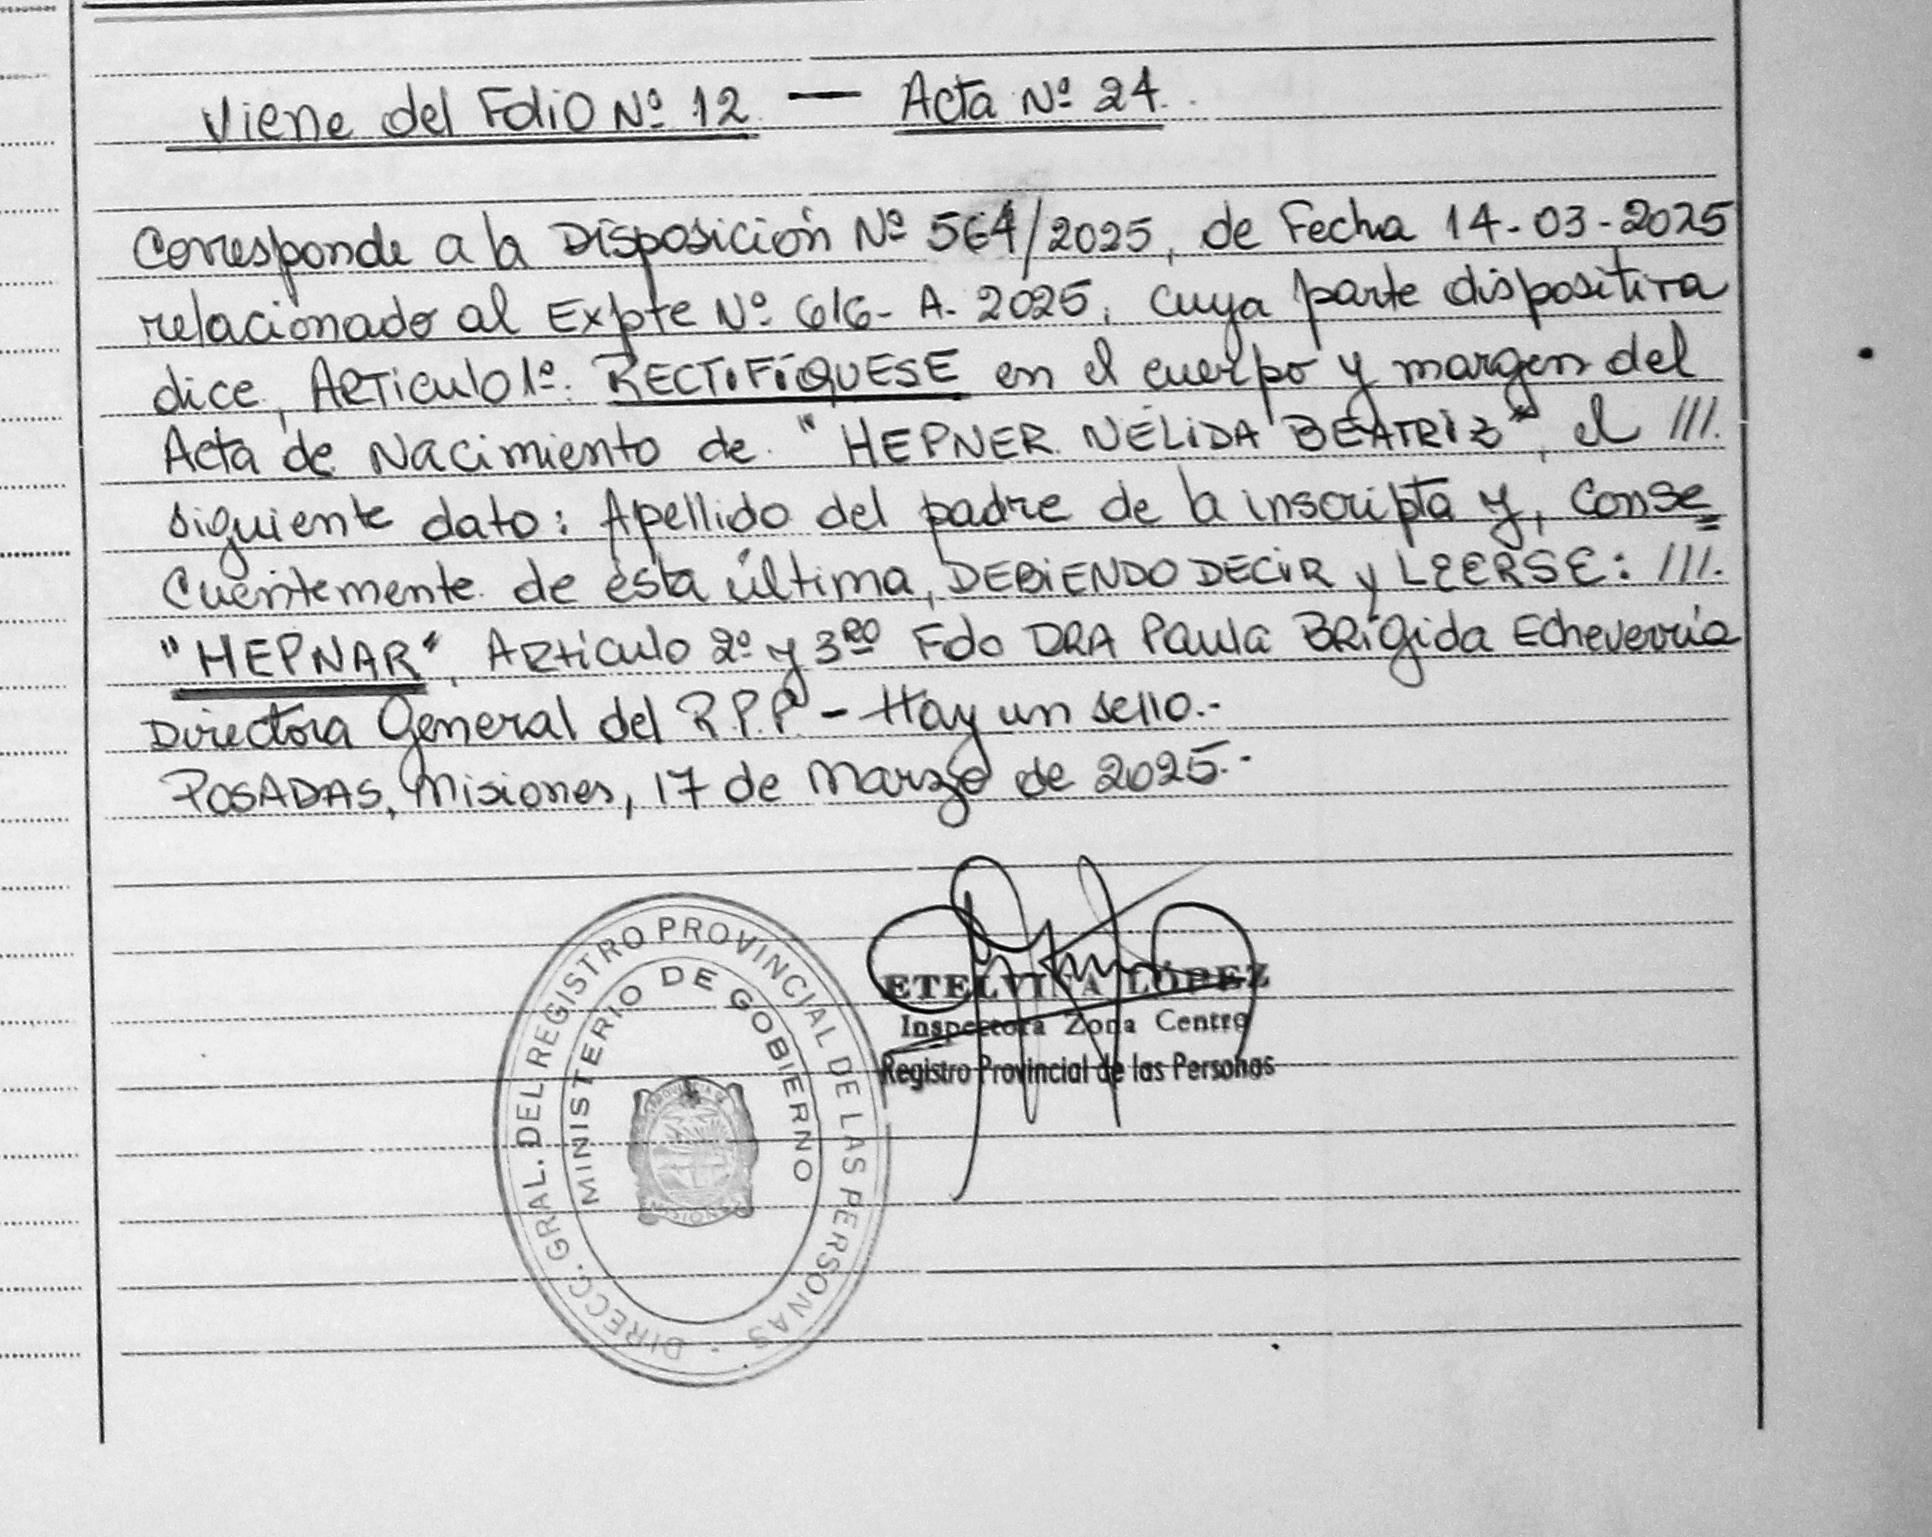 Viene del Folio Nº 12 — Acta Nº 24.
Corresponde a la Disposición Nº 564/2025, de Fecha 14-03-2025
relacionado al Expte Nº 616- A- 2025, cuya parte dispositiva
dice, Articulo 1º: RECTIFÍQUESE en el cuerpo y margen del
Acta de Nacimiento de "HEPNER NELIDA BEATRIZ", el ///.
siguiente dato: Apellido del padre de la inscripta y, conse=
cuentemente de ésta última, DEBIENDO DECIR y LEERSE: ///.
"HEPNAR", Artículo 2º y 3RO Fdo DRA Paula BRígida Echeverría
Directora General del R.P.P - Hay un sello.-
POSADAS, Misiones, 17 de Marzo de 2025.-
DIRECC. GRAL. DEL REGISTRO PROVINCIAL DE LAS PERSONAS
MINISTERIO DE GOBIERNO
PROVINCIA DE
MISIONES
ETELVINA LÓPEZ
Inspectora Zona Centro
Registro Provincial de las Personas